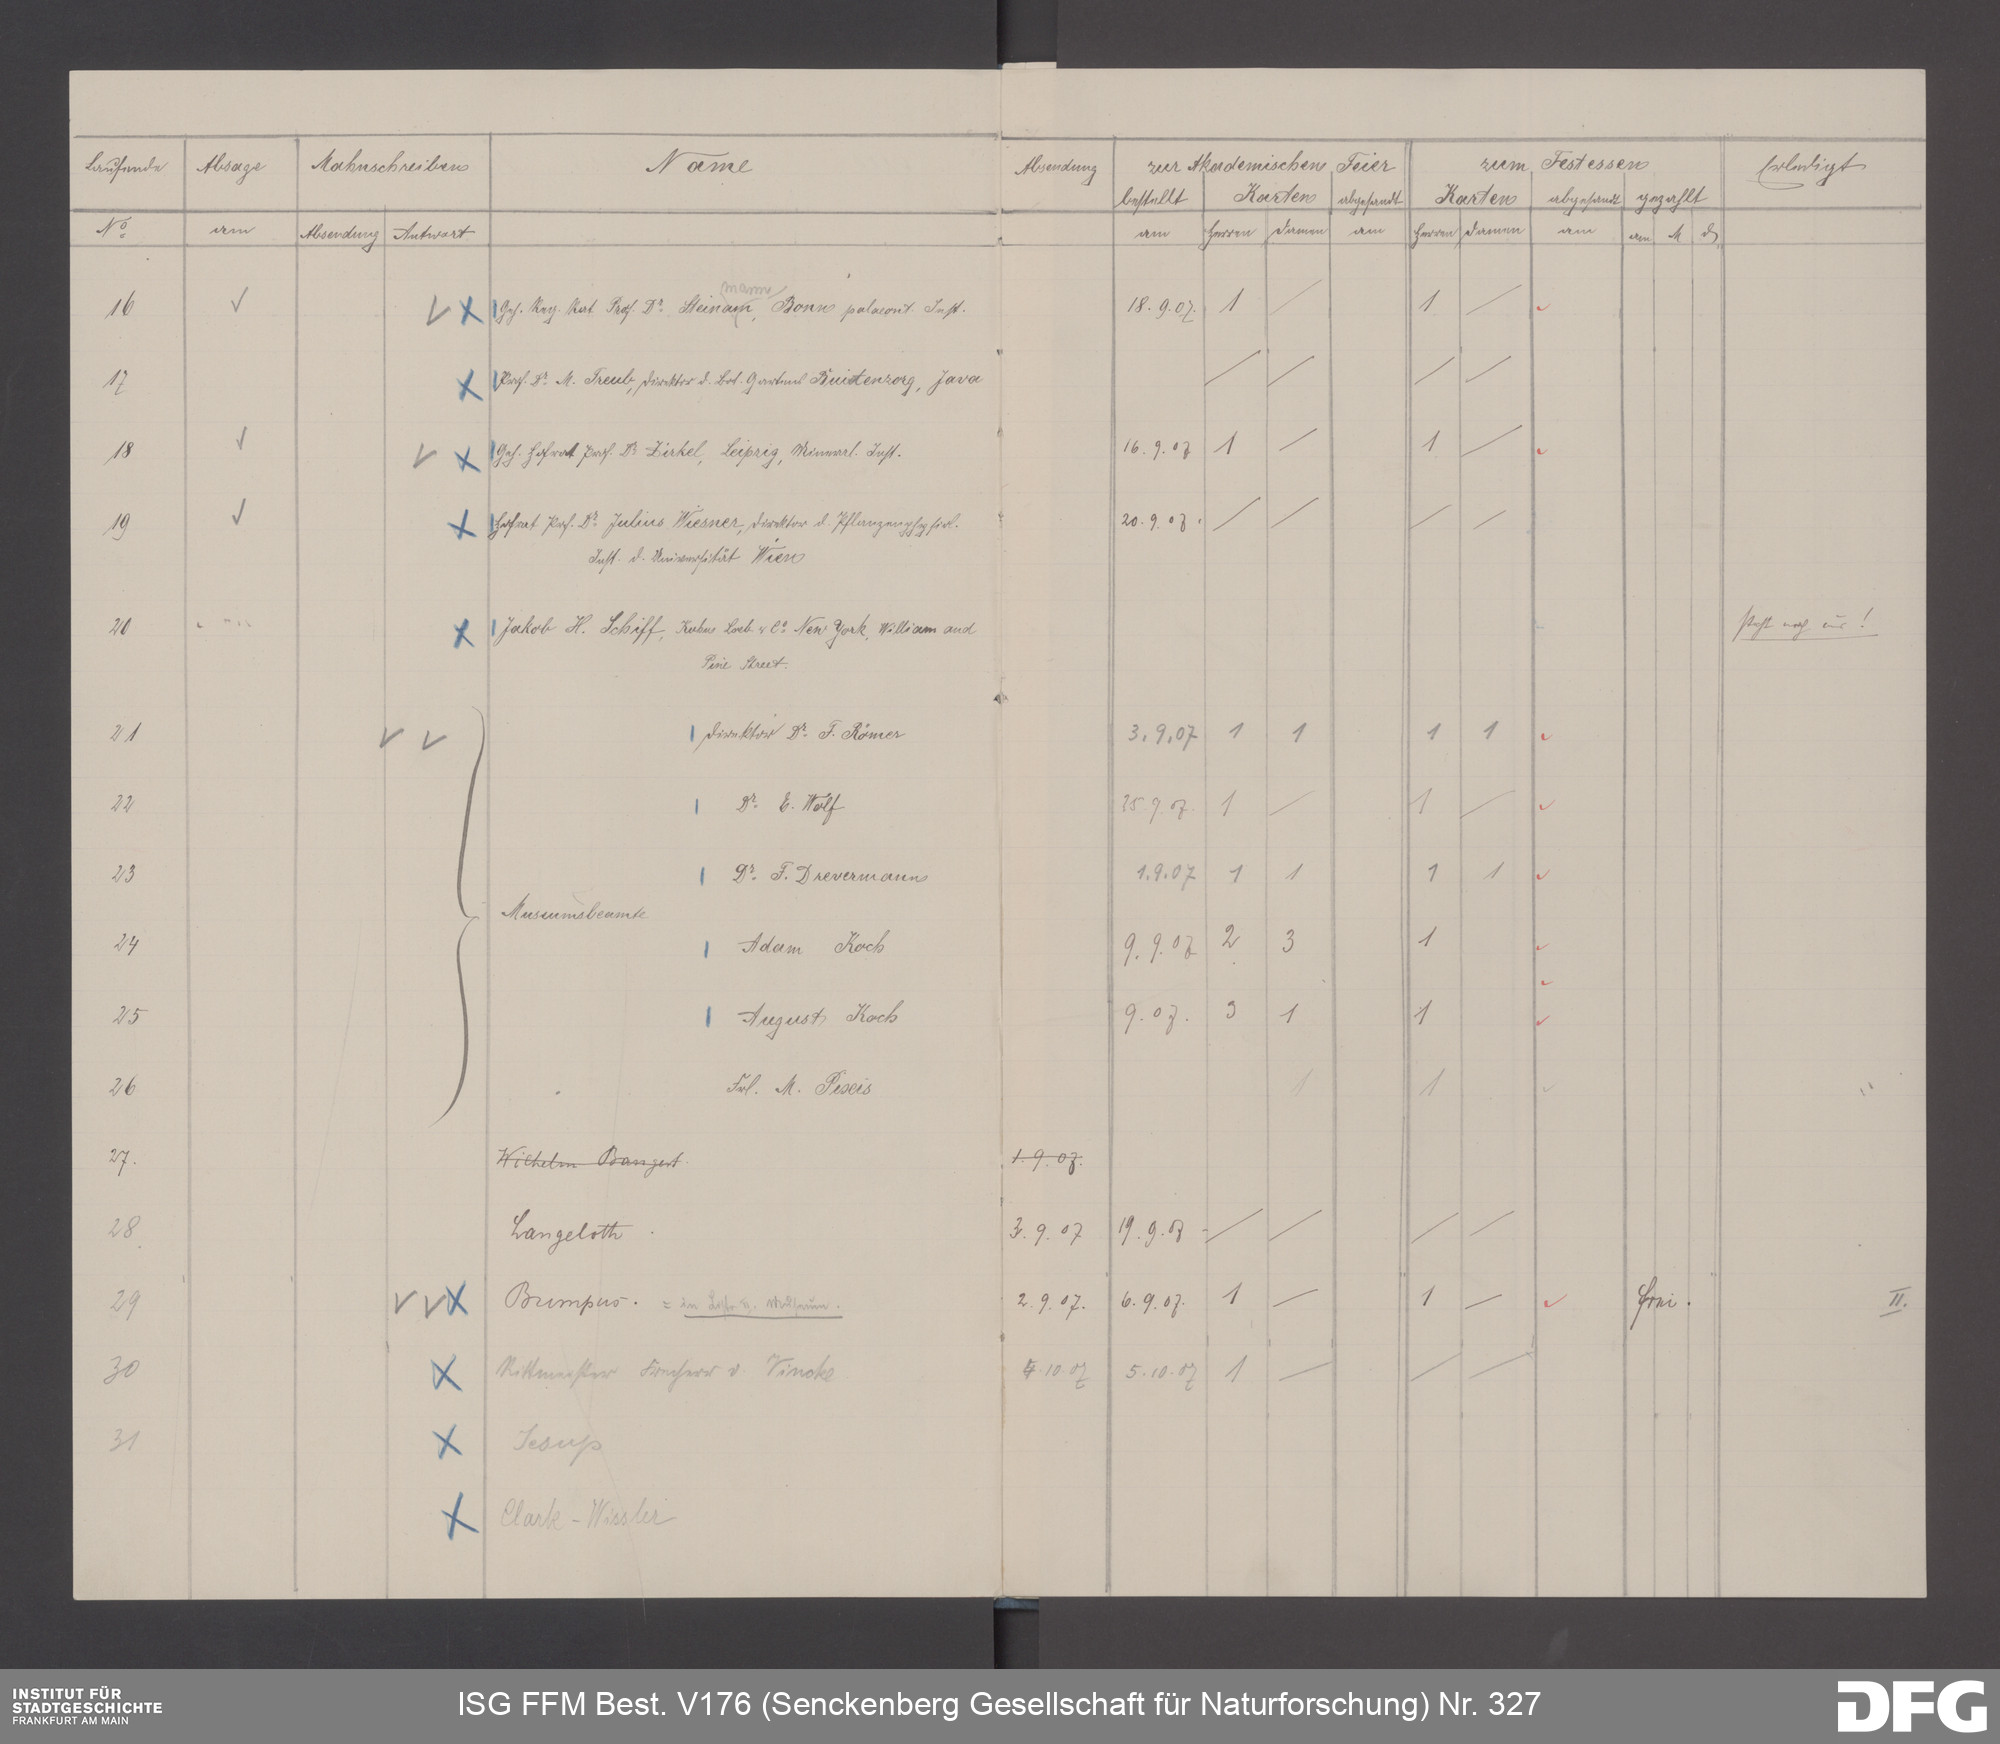 Laufende Absage Mahnschreiben Name Absendung zur Akademischen Feier zum Festessen Erledigt
bestellt Karten abgesandt Karten abgesandt gezahlt
No am Absendung Antwort am Herren Damen am Herren Damen am am M d
manns
16 √ V X Geh. Reg. Rat Prof. Dr. Steinam, Bonn palaeont. Inst. 18.9.07. 1 / 1 /
17 X Prof. Dr. M. Treub, Direktor d. bot. Gartens Buitenzorg, Java / / / /
18 √ V X Geh. Hofrat Prof. Dr. Zirkel, Leipzig, Mineral. Inst. 16.9.07 1 / 1 /
19 √ X Hofrat Prof. Dr. Julius Wiesner, Direktor d. Pflanzenphysiol. 20.9.07. / / / /
Inst. d. Universität Wien
20 X Jakob H. Schiff, Kuhn Loeb & Co. New York, William and steht noch aus!
Pine Street.
21 V V Direktor Dr. F. Römer 3.9.07 1 1 1 1
22 Dr. E. Wolf 25.9.07. 1 / 1 /
23 Dr. F. Drevermann 1.9.07 1 1 1 1
Museumsbeamte
24 Adam Koch 9.9.07 2 3 1
25 August Koch 9.07. 3 1 1
26 Frl. M. Pixis 1 1
27. Wilhelm Bangert. 1.9.07.
28 Langeloth 3.9.07 19.9.07 / / / /
29 V V X Bumpus. 2.9.07. 6.9.07. 1 / 1 / frei. II.
30 X Rittmeister Freiherr v. Vincke 4.10.07 5.10.07 1 / / /
31 X Jesup
X Clark-Wissler
INSTITUT FÜR
STADTGESCHICHTE
FRANKFURT AM MAIN
ISG FFM Best. V176 (Senckenberg Gesellschaft für Naturforschung) Nr. 327
DFG